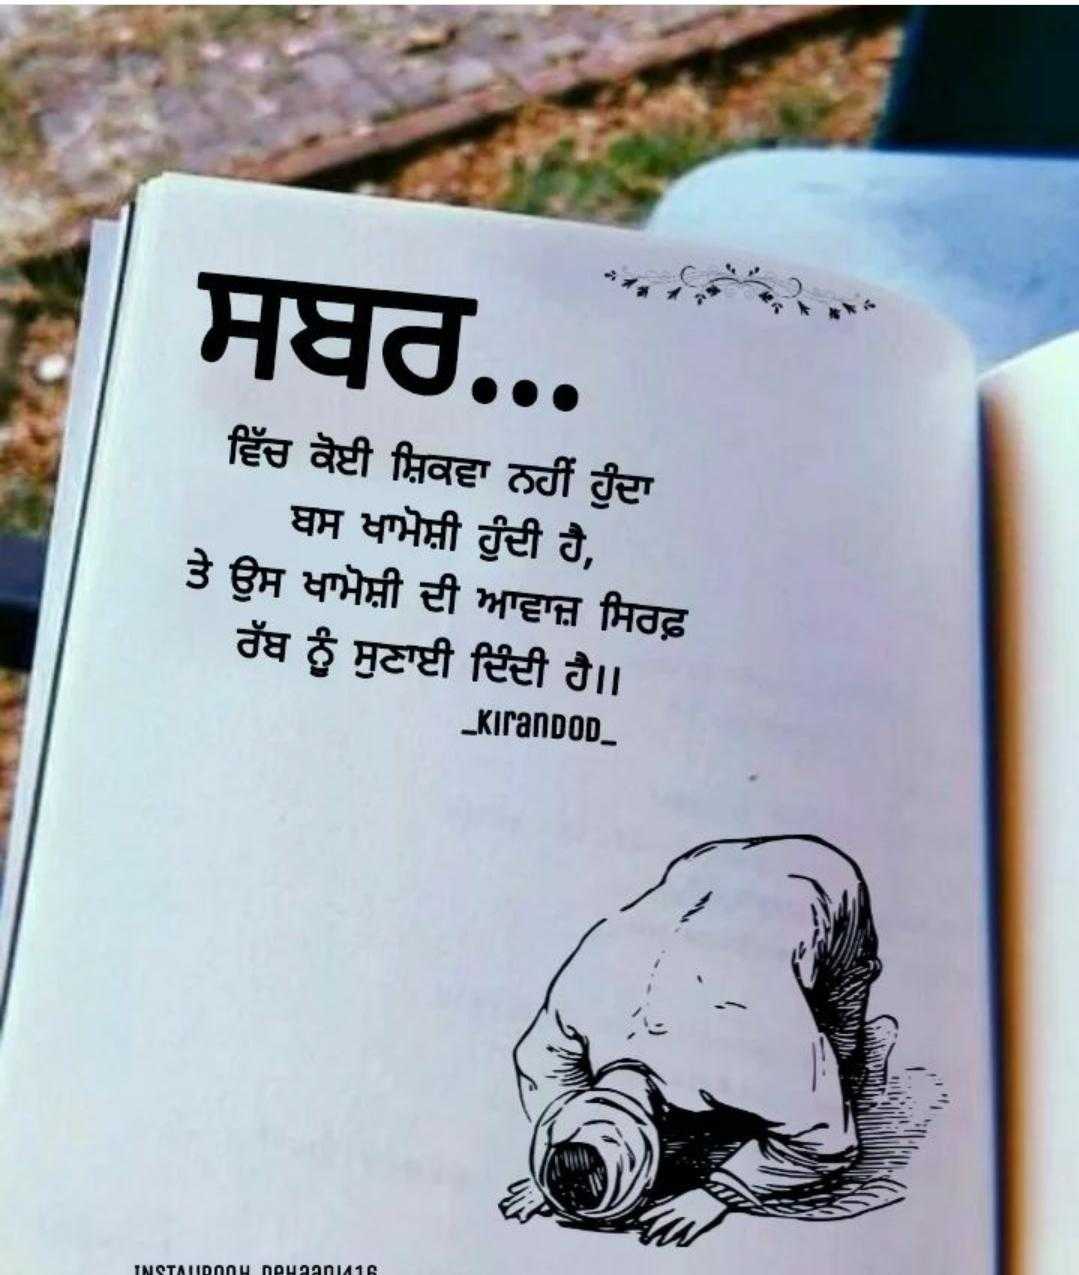 ਸਬਰ...
ਵਿੱਚ ਕੋਈ ਸ਼ਿਕਵਾ ਨਹੀਂ ਹੁੰਦਾ
ਬਸ ਖਾਮੋਸ਼ੀ ਹੁੰਦੀ ਹੈ,
ਤੇ ਉਸ ਖਾਮੋਸ਼ੀ ਦੀ ਆਵਾਜ਼ ਸਿਰਫ਼
ਰੱਬ ਨੂੰ ਸੁਣਾਈ ਦਿੰਦੀ ਹੈ।।
_KIranDOD_